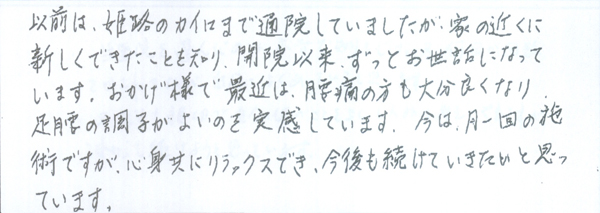 以前は、姫路のカイロまで通院していましたが、家の近くに
新しくできたことを知り、開院以来、ずっとお世話になって
います。おかげ様で最近は、腰痛の方も大分良くなり、
足腰の調子がよいのを実感しています。今は、月一回の施
術ですが、心身共にリラックスでき、今後も続けていきたいと思っ
ています。